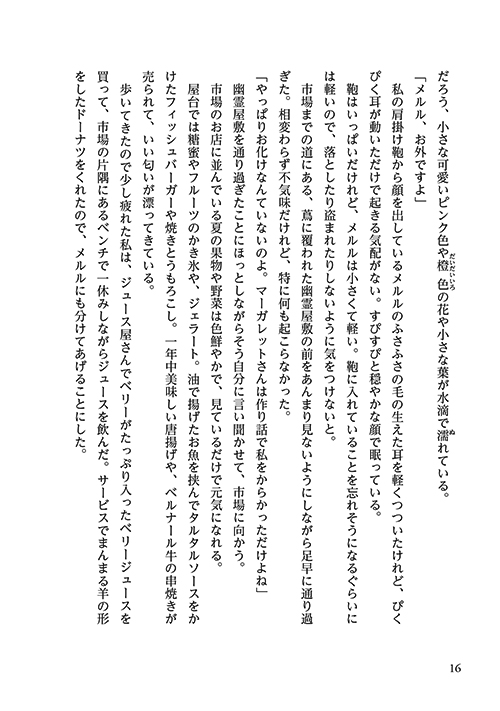 だろう、小さな可愛いピンク色や橙色の花や小さな葉が水滴で濡れている。
だいだいいろ
ぬ
「メルル、お外ですよ」
私の肩掛け鞄から顔を出しているメルルのふさふさの毛の生えた耳を軽くつついたけれど、ぴく
ぴく耳が動いただけで起きる気配がない。すぴすぴと穏やかな顔で眠っている。
鞄はいっぱいだけれど、メルルは小さくて軽い。鞄に入れていることを忘れそうになるぐらいに
は軽いので、落としたり盗まれたりしないように気をつけないと。
市場までの道にある、蔦に覆われた幽霊屋敷の前をあんまり見ないようにしながら足早に通り過
ぎた。相変わらず不気味だけれど、特に何も起こらなかった。
「やっぱりお化けなんていないのよ。マーガレットさんは作り話で私をからかっただけよね」
幽霊屋敷を通り過ぎたことにほっとしながらそう自分に言い聞かせて、市場に向かう。
市場のお店に並んでいる夏の果物や野菜は色鮮やかで、見ているだけで元気になれる。
屋台では糖蜜やフルーツのかき氷や、ジェラート。油で揚げたお魚を挟んでタルタルソースをか
けたフィッシュバーガーや焼きとうもろこし。一年中美味しい唐揚げや、ベルナール牛の串焼きが
売られて、いい匂いが漂ってきている。
歩いてきたので少し疲れた私は、ジュース屋さんでベリーがたっぷり入ったベリージュースを
買って、市場の片隅にあるベンチで一休みしながらジュースを飲んだ。サービスでまんまる羊の形
をしたドーナツをくれたので、メルルにも分けてあげることにした。
16